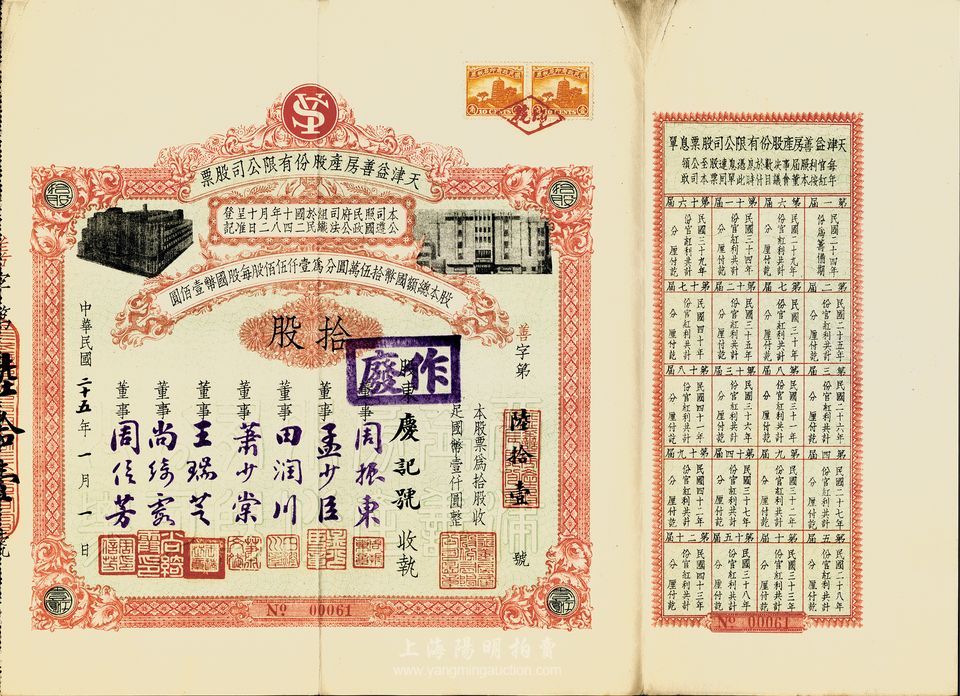 天津益善房產股份有限公司股票
本公司遵照國民政府公司法組織於民國二十四年十月八日呈准登記
股本總額國幣拾伍萬圓分為壹仟伍佰股每股國幣壹佰圓
拾股
善字第陸拾壹號
本股票為拾股收
足國幣壹仟圓整
股東慶記號收執
作廢
董事周振東
董事孟少臣
董事田潤川
董事蕭少棠
董事王瑞芝
董事尚綺霞
董事周信芳
中華民國二十五年一月一日
No 00061
天津益善房產股份有限公司股票息單
第一屆
民國二十四年
份為籌備期
第二屆
民國二十五年
份官紅利共計
分厘付訖
第三屆
民國二十六年
份官紅利共計
分厘付訖
第四屆
民國二十七年
份官紅利共計
分厘付訖
第五屆
民國二十八年
份官紅利共計
分厘付訖
第六屆
民國二十九年
份官紅利共計
分厘付訖
第七屆
民國三十年
份官紅利共計
分厘付訖
第八屆
民國三十一年
份官紅利共計
分厘付訖
第九屆
民國三十二年
份官紅利共計
分厘付訖
第十屆
民國三十三年
份官紅利共計
分厘付訖
第十一屆
民國三十四年
份官紅利共計
分厘付訖
第十二屆
民國三十五年
份官紅利共計
分厘付訖
第十三屆
民國三十六年
份官紅利共計
分厘付訖
第十四屆
民國三十七年
份官紅利共計
分厘付訖
第十五屆
民國三十八年
份官紅利共計
分厘付訖
第十六屆
民國三十九年
份官紅利共計
分厘付訖
第十七屆
民國四十年
份官紅利共計
分厘付訖
第十八屆
民國四十一年
份官紅利共計
分厘付訖
第十九屆
民國四十二年
份官紅利共計
分厘付訖
第二十屆
民國四十三年
份官紅利共計
分厘付訖
No 00061
上海陽明拍賣
www.yangmingauction.com